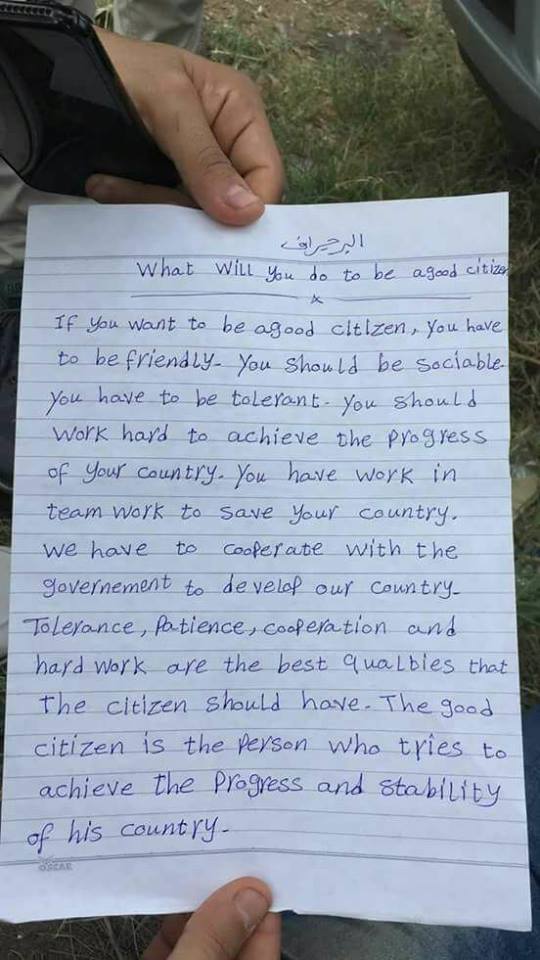 البرجراف
What will you do to be agood citizen
x
If you want to be agood citizen, you have
to be friendly. you should be sociable.
you have to be tolerant. you should
work hard to achieve the progress
of your country. you have work in
team work to save your country.
we have to cooperate with the
governement to develop our country.
Tolerance, Patience, cooperation and
hard work are the best qualbies that
the citizen should have. The good
citizen is the person who tries to
achieve the progress and stability
of his country.
OSCAR